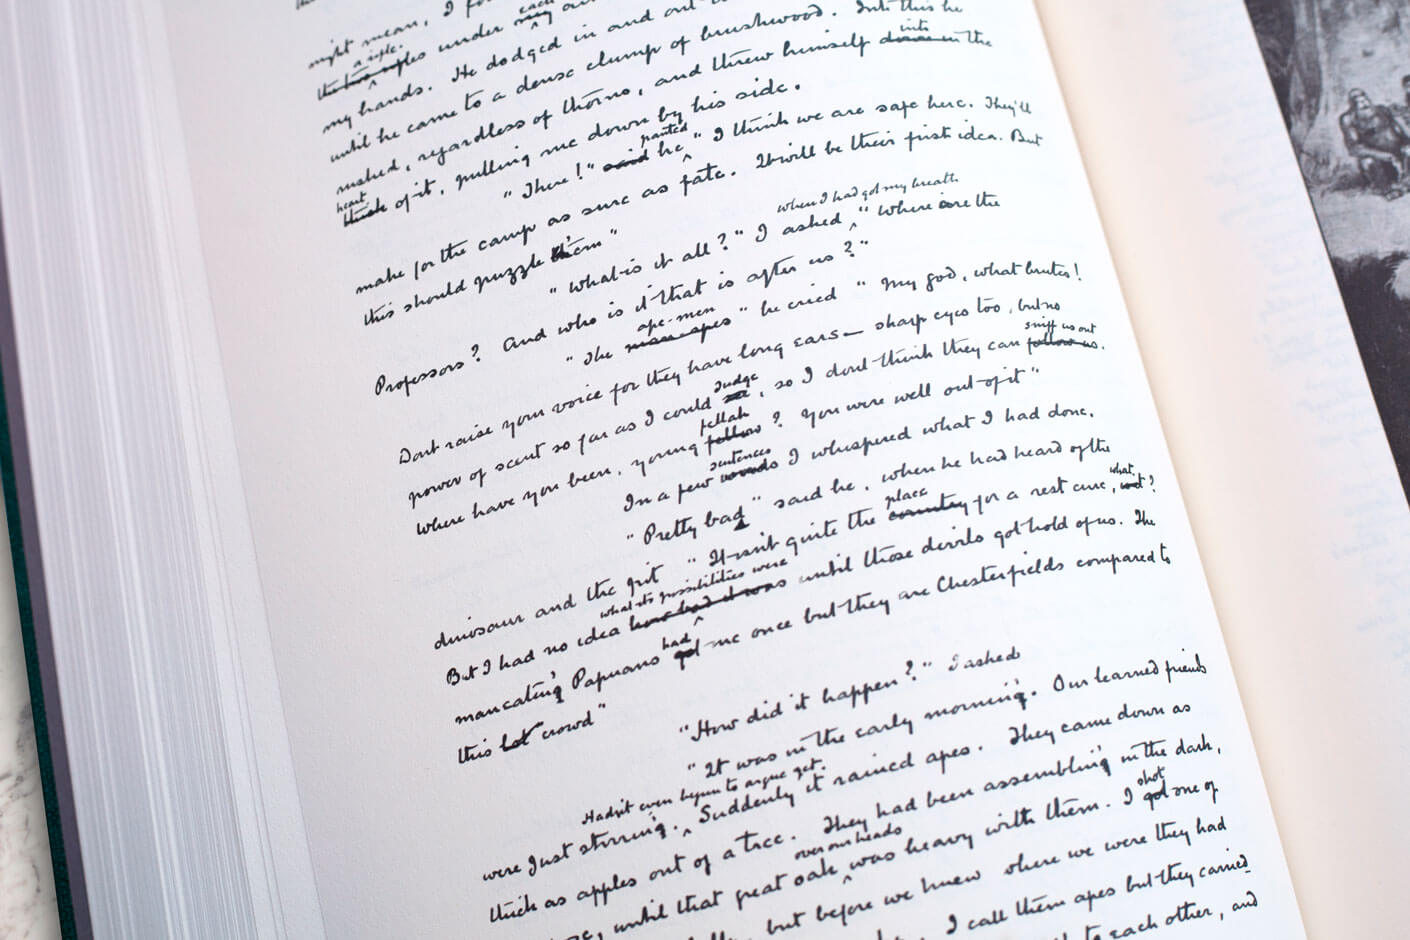 might mean, I fo
a rifle. each
the two rifles under my
my hands. He dodged in and out
until he came to a dense clump of brushwood. Into this he
into
rushed, regardless of thorns, and threw himself down in the
heart
thick of it, pulling me down by his side.
panted
"There!" said he "I think we are safe here. They'll
make for the camp as sure as fate. It will be their first idea. But
this should puzzle them"
when I had got my breath
"What is it all?" I asked "Where are the
Professors? And who is it that is after us?"
ape-men
"The man-apes" he cried "My God, what brutes!
Dont raise your voice for they have long ears— sharp eyes too, but no
judge sniff us out
power of scent so far as I could see, so I dont think they can follow us.
fellah
Where have you been, young fellow? You were well out of it"
sentences
In a few words I whispered what I had done.
"Pretty bad" said he, when he had heard of the
place what
dinosaur and the pit "It isn't quite the country for a rest cure, not?
what its possibilities were
But I had no idea how bad it was until those devils got hold of us. The
had
maneatin' Papuans got me once but they are Chesterfields compared to
this lot crowd"
"How did it happen?" I asked
"It was in the early mornin'. Our learned friends
Hadn't even begun to argue yet.
were just stirrin'. Suddenly it rained apes. They came down as
thick as apples out of a tree. They had been assemblin' in the dark,
over our heads shot
until that great oak was heavy with them. I got one of
but before we knew where we were they had
I call them apes but they carried
to each other, and